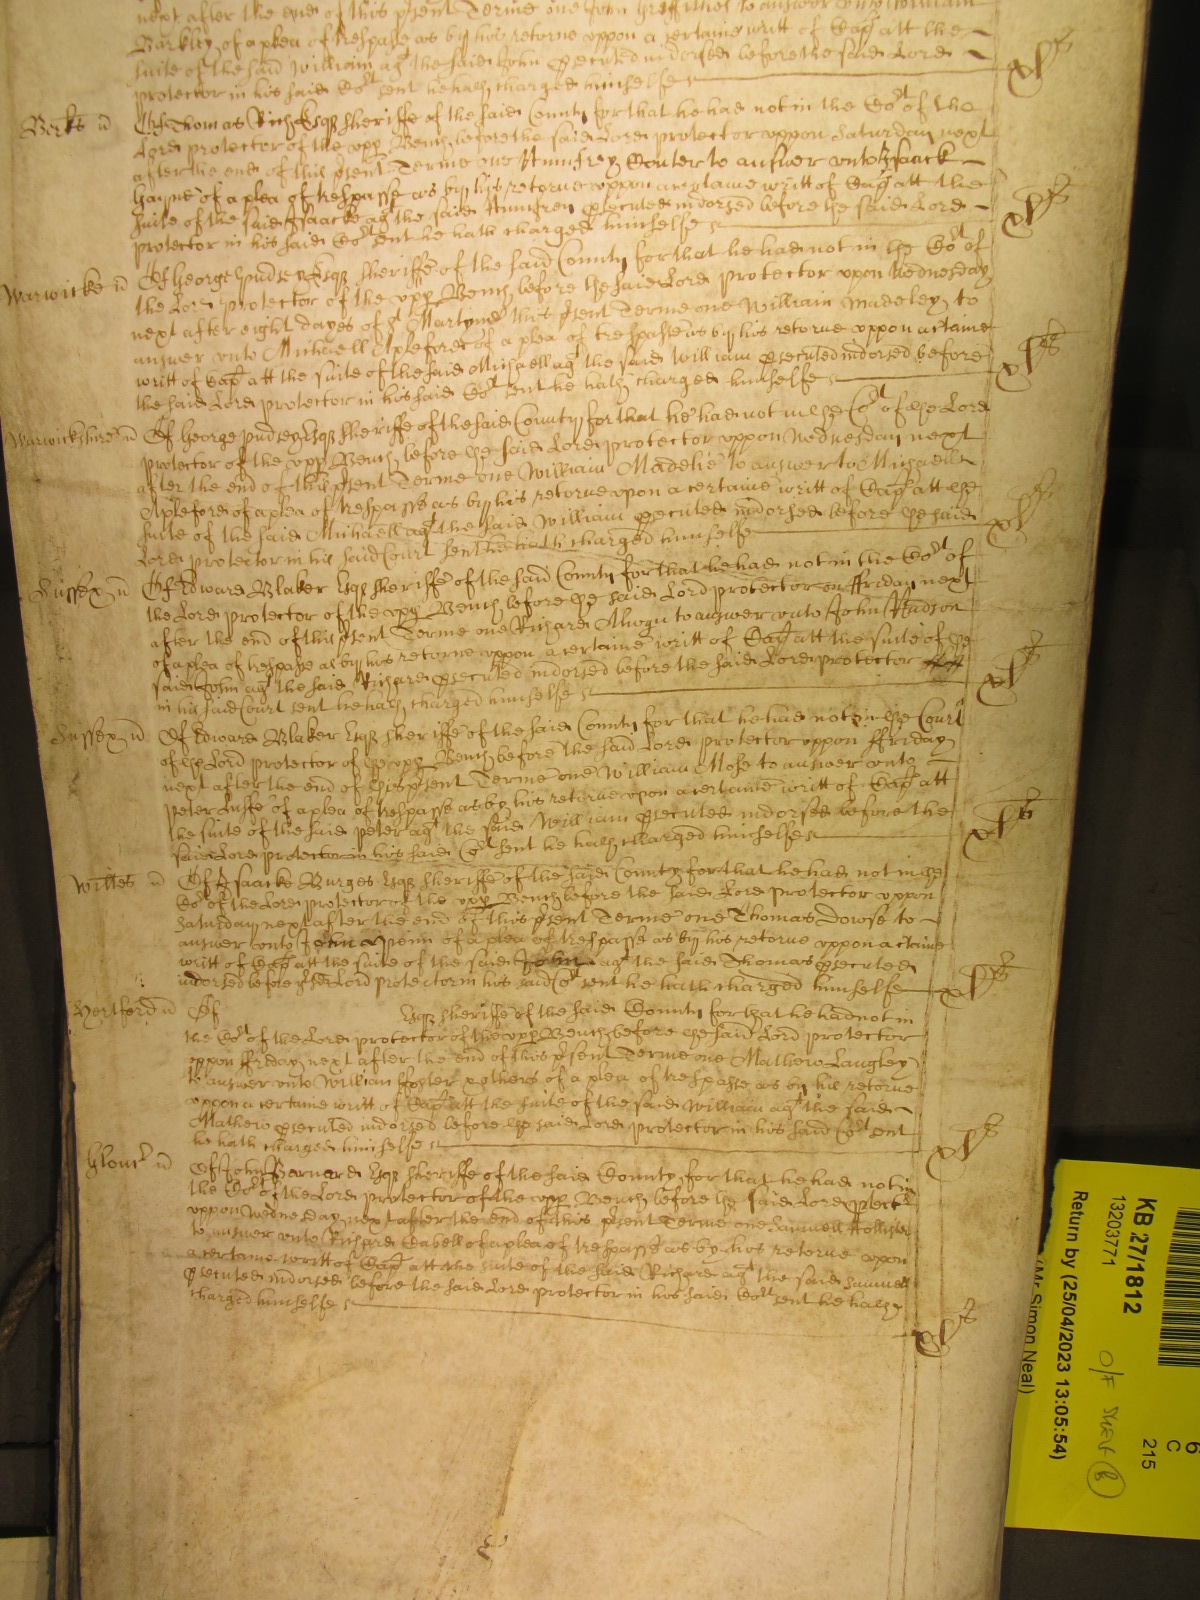 next after the end of this p̱sent Terme one John to answer unto William
Barkley of a plea of trespasse as by his retorne uppon a certaine writt of Cap̱ att the
suite of the said William agt the said John p̱secuted indorsed before the said Lord
protector in his said Cort sent he hath charged himselfe
xls
Berks
Of Thomas Rich Esqr Sheriffe of the said County for that he had not in the Cort of the
Lord protector of the upp̱ Bench before the said Lord protector uppon Saturday next
after the end of this p̱sent Terme one Humfrey Souter to answer unto Isaack
of a plea of trespasse as by his retorne uppon a certaine writt of Cap̱ att the
suite of the said Isaacke agt the said Humfrey p̱secuted indorsed before the said Lord
protector in his said Cort sent he hath charged himselfe
xls
Warwicke
Of George pudsey Esqr Sheriffe of the said County for that he had not in the Cort of
the Lord protector of the upp̱ Bench before the said Lord protector upon Wednesday
next after eight dayes of St Martyne this p̱sent Terme one William Madeley to
answer unto Michaell Apleford of a plea of trespasse as by his retorne uppon a c̱taine
writt of Cap̱ att the suite of the said Michaell agt the said William p̱secuted indorsed before
the said Lord protector in his said Cort sent he hath charged himselfe
xls
Warwickshire
Of George pudsey Esqr Sheriffe of the said County for that he had not in the Cort of the Lord
protector of the upp̱ Bench before the said Lord protector uppon Wednesday next
after the end of this p̱sent Terme one William Madelie to answer to Michaell
Apleford of a plea of trespasse as by his retorne upon a certaine writt of Cap̱ att the
suite of the said Michaell agt the said William p̱secuted indorsed before the said
Lord protector in his said Court sent he hath charged himselfe
xls
Sussex
Of Edward Blaker Esqr Sheriffe of the said County for that he had not in the Cort of
the Lord protector of the upp̱ Bench before the said Lord protector on ffriday next
after the end of this p̱sent Terme one Richard to answer unto John Hudson
of a plea of trespasse as by his retorne uppon a certaine writt of Cap̱ att the suite of the
said John agt the said Richard p̱secuted indorsed before the said Lord protector
in his said Court sent he hath charged himselfe
xls
Sussex
Of Edward Blaker Esqr Sheriffe of the said County for that he had not in the Court
of the Lord protector of the upp̱ Bench before the said Lord protector uppon ffriday
next after the end of this p̱sent Terme one William Mose to answer unto
Peter of a plea of trespasse as by his retorne upon a certaine writt of Cap̱ att
the suite of the said peter agt the said William p̱secuted indorsed before the
said Lord protector in his said Cort sent he hath charged himselfe
xls
Wiltes
Of Isaacke Burges Esqr Sheriffe of the said County for that he had not in the
Cort of the Lord protector of the upp̱ Bench before the said Lord protector uppon
Saturday next after the end of this p̱sent Terme one Thomas Dowse to
answer unto John Penn of a plea of trespasse as by his retorne uppon a c̱taine
writt of Cap̱ att the suite of the said John agt the said Thomas p̱secuted
indorsed before the said Lord protector in his said Cort sent he hath charged himselfe
xls
Hertford
Of Esqr Sheriffe of the said County for that he had not in
the Cort of the Lord protector of the upp̱ Bench before the said Lord protector
uppon ffriday next after the end of this p̱sent Terme one Mathew Langley
to answer unto William ffoster & others of a plea of trespasse as by his retorne
uppon a certaine writt of Cap̱ att the suite of the said William agt the said
Mathew p̱secuted indorsed before the said Lord protector in his said Cort sent
he hath charged himselfe
xls
Glouc
Of John Barnard Esqr Sheriffe of the said County for that he had not in
the Cort of the Lord protector of the upp̱ Bench before the said Lord p̱tector
uppon Wednesday next after the end of this p̱sent Terme one Samuell Hollister
to answer unto Richard Cabell of a plea of trespasse as by his retorne upon
a certaine writt of Cap̱ att the suite of the said Richard agt the said Samuell
p̱secuted indorsed before the said Lord protector in his said Cort sent he hath
charged himselfe
xls
KB 27/1812
13203771
Return by (25/04/2023 13:05:54)
(Mr Simon Neal)
O/F
B
6
C
215